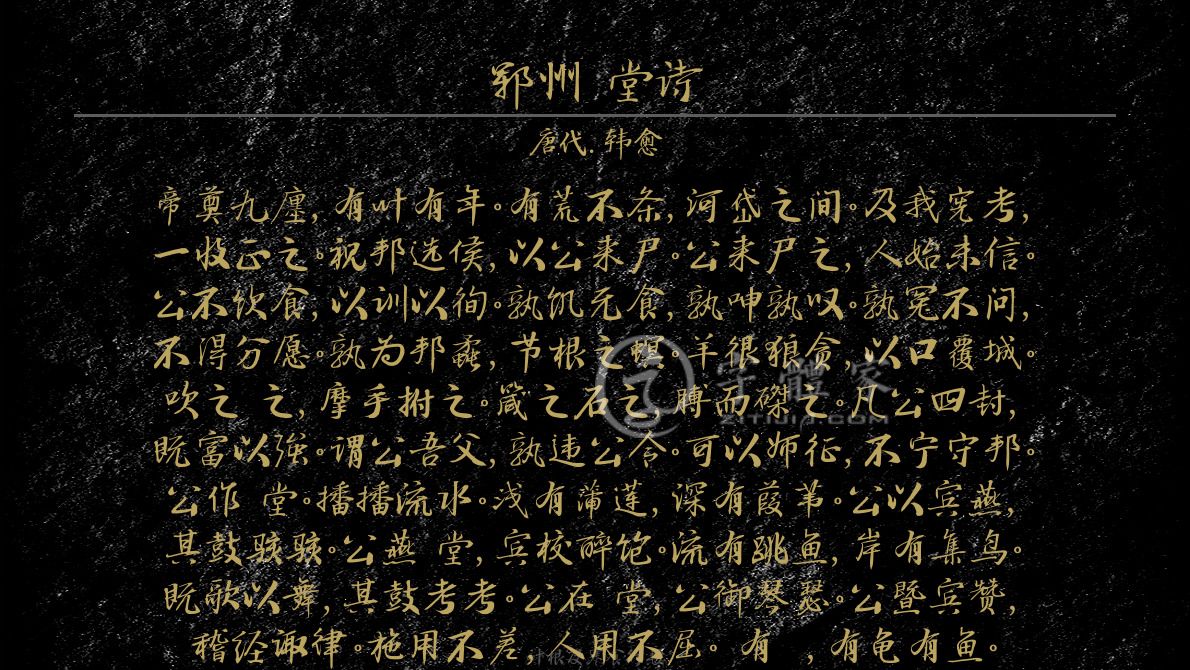 郓州 堂诗
唐代. 韩愈
帝奠九廛, 有叶有年。有荒不条, 河岱之间。及我宪考,
一收正之。视邦选侯, 以公来尸。公来尸之, 人始未信。
公不饮食, 以训以徇。孰饥无食, 孰呻孰叹。孰冤不问,
不得分愿。孰为邦蟊, 节根之螟。羊很狼贪, 以口覆城。
吹之 之, 摩手拊之。箴之石之, 膊而磔之。凡公四封,
既富以强。谓公吾父, 孰违公令。可以师征, 不宁守邦。
公作 堂。播播流水。浅有蒲莲, 深有葭苇。公以宾燕,
其鼓骇骇。公燕 堂, 宾校醉饱。流有跳鱼, 岸有集鸟。
既歌以舞, 其鼓考考。公在 堂, 公御琴瑟。公暨宾赞,
稽经诹律。施用不差, 人用不屈。 有 , 有龟有鱼。
字體家
ZITIJIA.COM